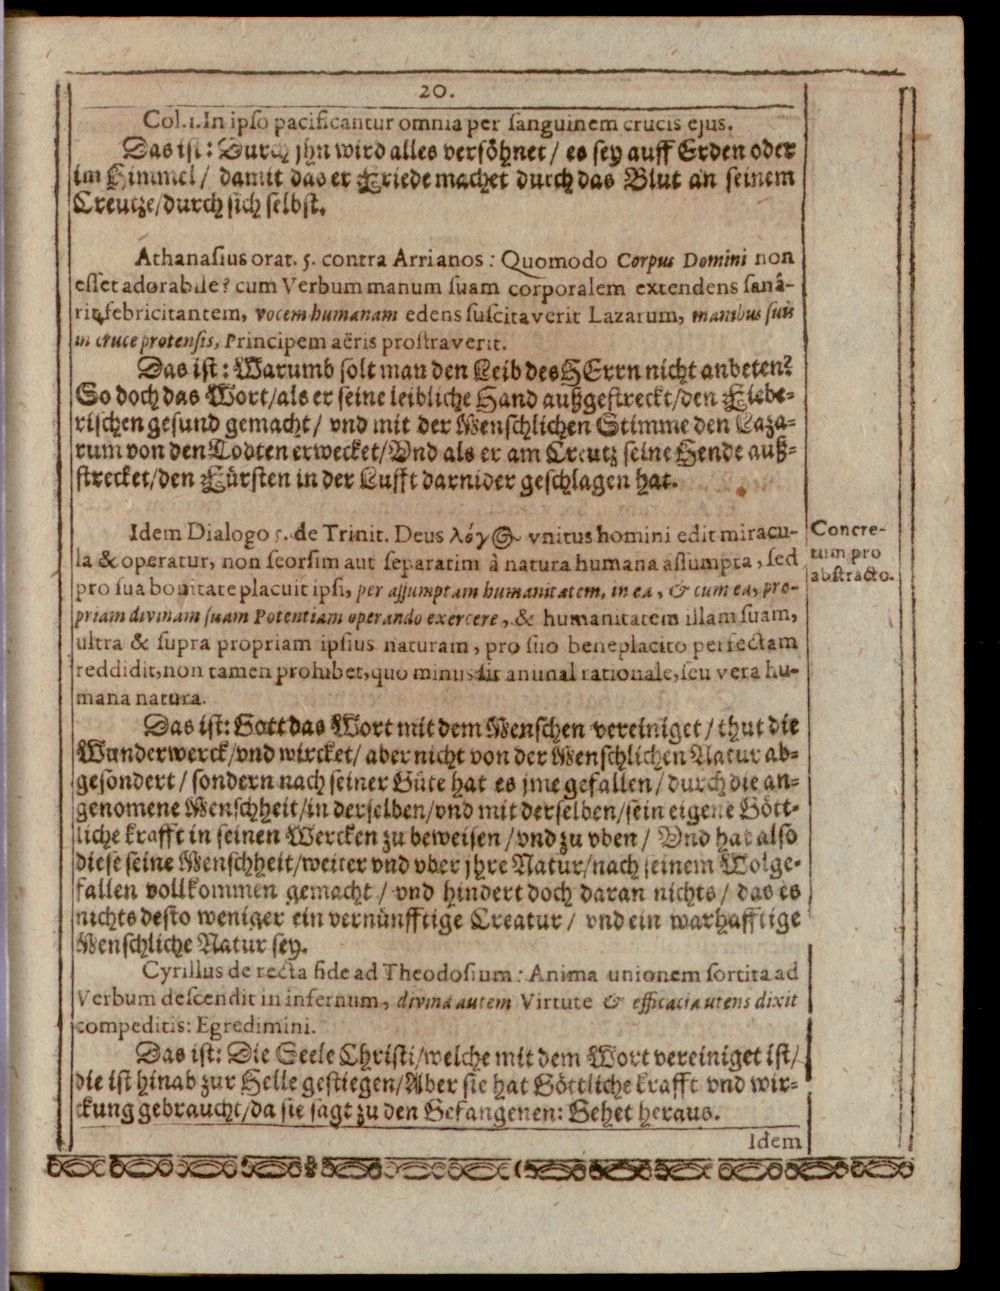 20.
Col.1. In ipso pacificantur omnia per sanguinem crucis ejus.
Das ist: Durch jhn wird alles versöhnet/ es sey auff Erden oder
im Himmel/ damit das er Friede machet durch das Blut an seinem
Creutze/durch sich selbst.
Athanasius orat. 5. contra Arrianos: Quomodo Corpus Domini non
esset adorabile? cum Verbum manum suam corporalem extendens sanâ-
rit febricitantem, vocem humanam edens suscitaverit Lazarum, manibus suis
in cruce protensis, Principem aëris prostraverit.
Das ist: Warumb solt man den Leib des HErrn nicht anbeten?
So doch das Wort/als er seine leibliche Hand außgestreckt/den Fiebe-
rischen gesund gemacht/ vnd mit der Menschlichen Stimme den Laza-
rum von den Todten erwecket/Vnd als er am Creutz seine Hende auß-
strecket/den Fürsten in der Lufft darnider geschlagen hat.
Idem Dialogo 5. de Trinit. Deus λόγος vnitus homini edit miracu-
la & operatur, non seorsim aut separatim à natura humana assumpta, sed
pro sua bonitate placuit ipsi, per assumptam humanitatem, in ea, & cum ea, pro-
priam divinam suam Potentiam operando exercere, & humanitatem illam suam,
ultra & supra propriam ipsius naturam, pro suo beneplacito perfectam
reddidit, non tamen prohibet, quo minus sit animal rationale, seu vera hu-
mana natura.
Concre-
tum pro
abstracto.
Das ist: Gott das Wort mit dem Menschen vereiniget/ thut die
Wunderwerck/vnd wircket/ aber nicht von der Menschlichen Natur ab-
gesondert/ sondern nach seiner Güte hat es jme gefallen/ durch die an-
genomene Menschheit/in derselben/vnd mit derselben/sein eigene Gött-
liche krafft in seinen Wercken zu beweisen/vnd zu vben/ Vnd hat also
diese seine Menschheit/weiter vnd vber jhre Natur/nach seinem Wolge-
fallen vollkommen gemacht/ vnd hindert doch daran nichts/ das es
nichts desto weniger ein vernünfftige Creatur/ vnd ein warhafftige
Menschliche Natur sey.
Cyrillus de recta fide ad Theodosium: Anima unionem sortita ad
Verbum descendit in infernum, divina autem Virtute & efficacia utens dixit
compeditis: Egredimini.
Das ist: Die Seele Christi/welche mit dem Wort vereiniget ist/
die ist hinab zur Helle gestiegen/Aber sie hat Göttliche krafft vnd wir-
ckung gebraucht/da sie sagt zu den Gefangenen: Gehet heraus.
Idem